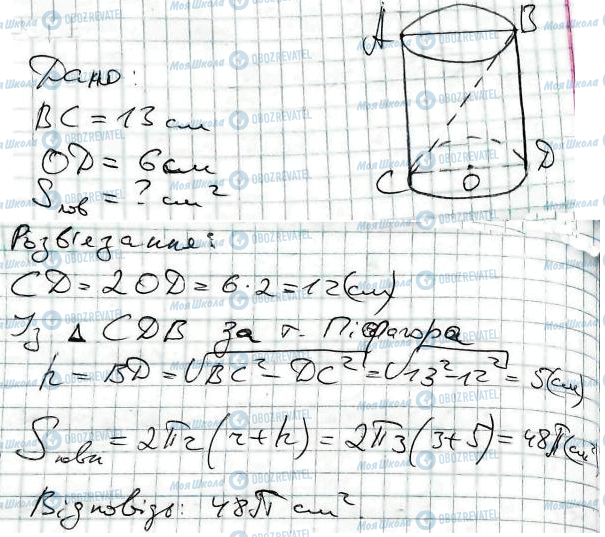 A B
Дано:
BC = 13 см
OD = 6 см
Sпов = ? см²
C O D
Розв'язання:
CD = 2OD = 6 · 2 = 12 (см)
Із △ CDB за т. Піфагора
h = BD = √BC² - DC² = √13² - 12² = 5 (см)
Sповн = 2πr(r + h) = 2π3(3+5) = 48π (см²)
Відповідь: 48π см².
Моя Школа OBOZREVATEL